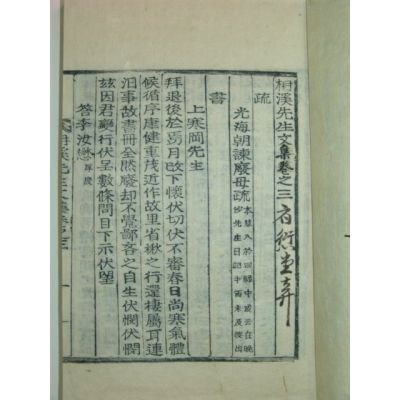 桐溪先生文集卷之三
疏
光海朝諫廢母疏
書
上寒岡先生
拜退後於焉月改下懷伏切伏不審春日尚寒氣體
候循序康健重茂近作故里省楸之行還棲屬耳連
汨事故書冊全然廢却不覺鄙吝之自生伏憫伏憫
玆因君燮行伏呈數條問目下示伏望
答李汝懋 厚慶
桐溪先生文集卷之三